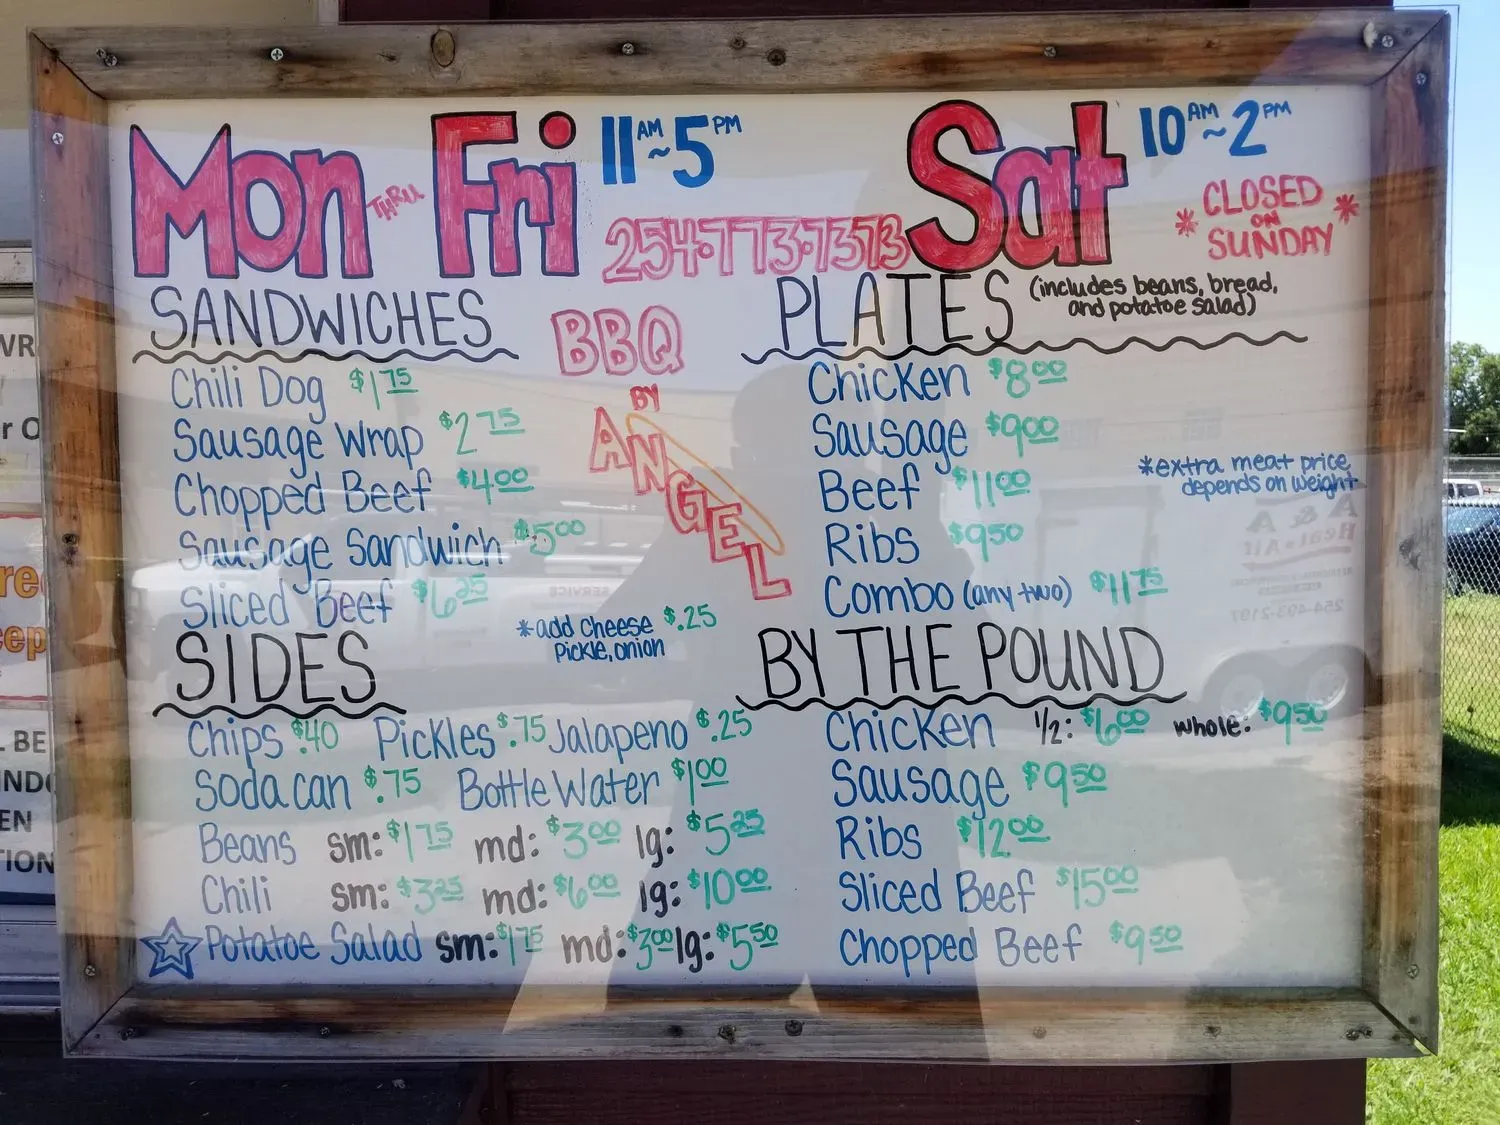 Mon THRU Fri 11AM~5PM
Sat 10AM~2PM
*CLOSED
ON
SUNDAY*
254·773·7373
BBQ
BY
ANGEL
SANDWICHES
Chili Dog $1.75
Sausage Wrap $2.75
Chopped Beef $4.00
Sausage Sandwich $5.00
Sliced Beef $6.25
*add cheese $.25
pickle, onion
PLATES (includes beans, bread,
and potatoe salad)
Chicken $8.00
Sausage $9.00
Beef $11.00
Ribs $9.50
Combo (any two) $11.75
*extra meat price
depends on weight
SIDES
Chips $.40 Pickles $.75 Jalapeno $.25
Soda can $.75 Bottle Water $1.00
Beans sm: $1.75 md: $3.00 lg: $5.25
Chili sm: $3.25 md: $6.00 lg: $10.00
Potatoe Salad sm: $1.75 md: $3.00 lg: $5.50
BY THE POUND
Chicken 1/2: $6.00 whole: $9.50
Sausage $9.50
Ribs $12.00
Sliced Beef $15.00
Chopped Beef $9.50
A & A
Heat & Air
SERVICE